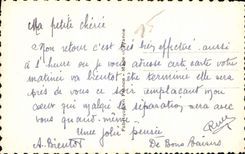 Ma petite chérie
Mon retour c'est très bien effectué aussi
à l'heure où je vous adresse cette carte votre
matinée va bientôt être terminée elle sera
près de vous ce soir remplaçant mon
cœur qui malgré la séparation sera avec
vous quand-même.
Une jolie pensée
A Bientôt De Bons Baisers